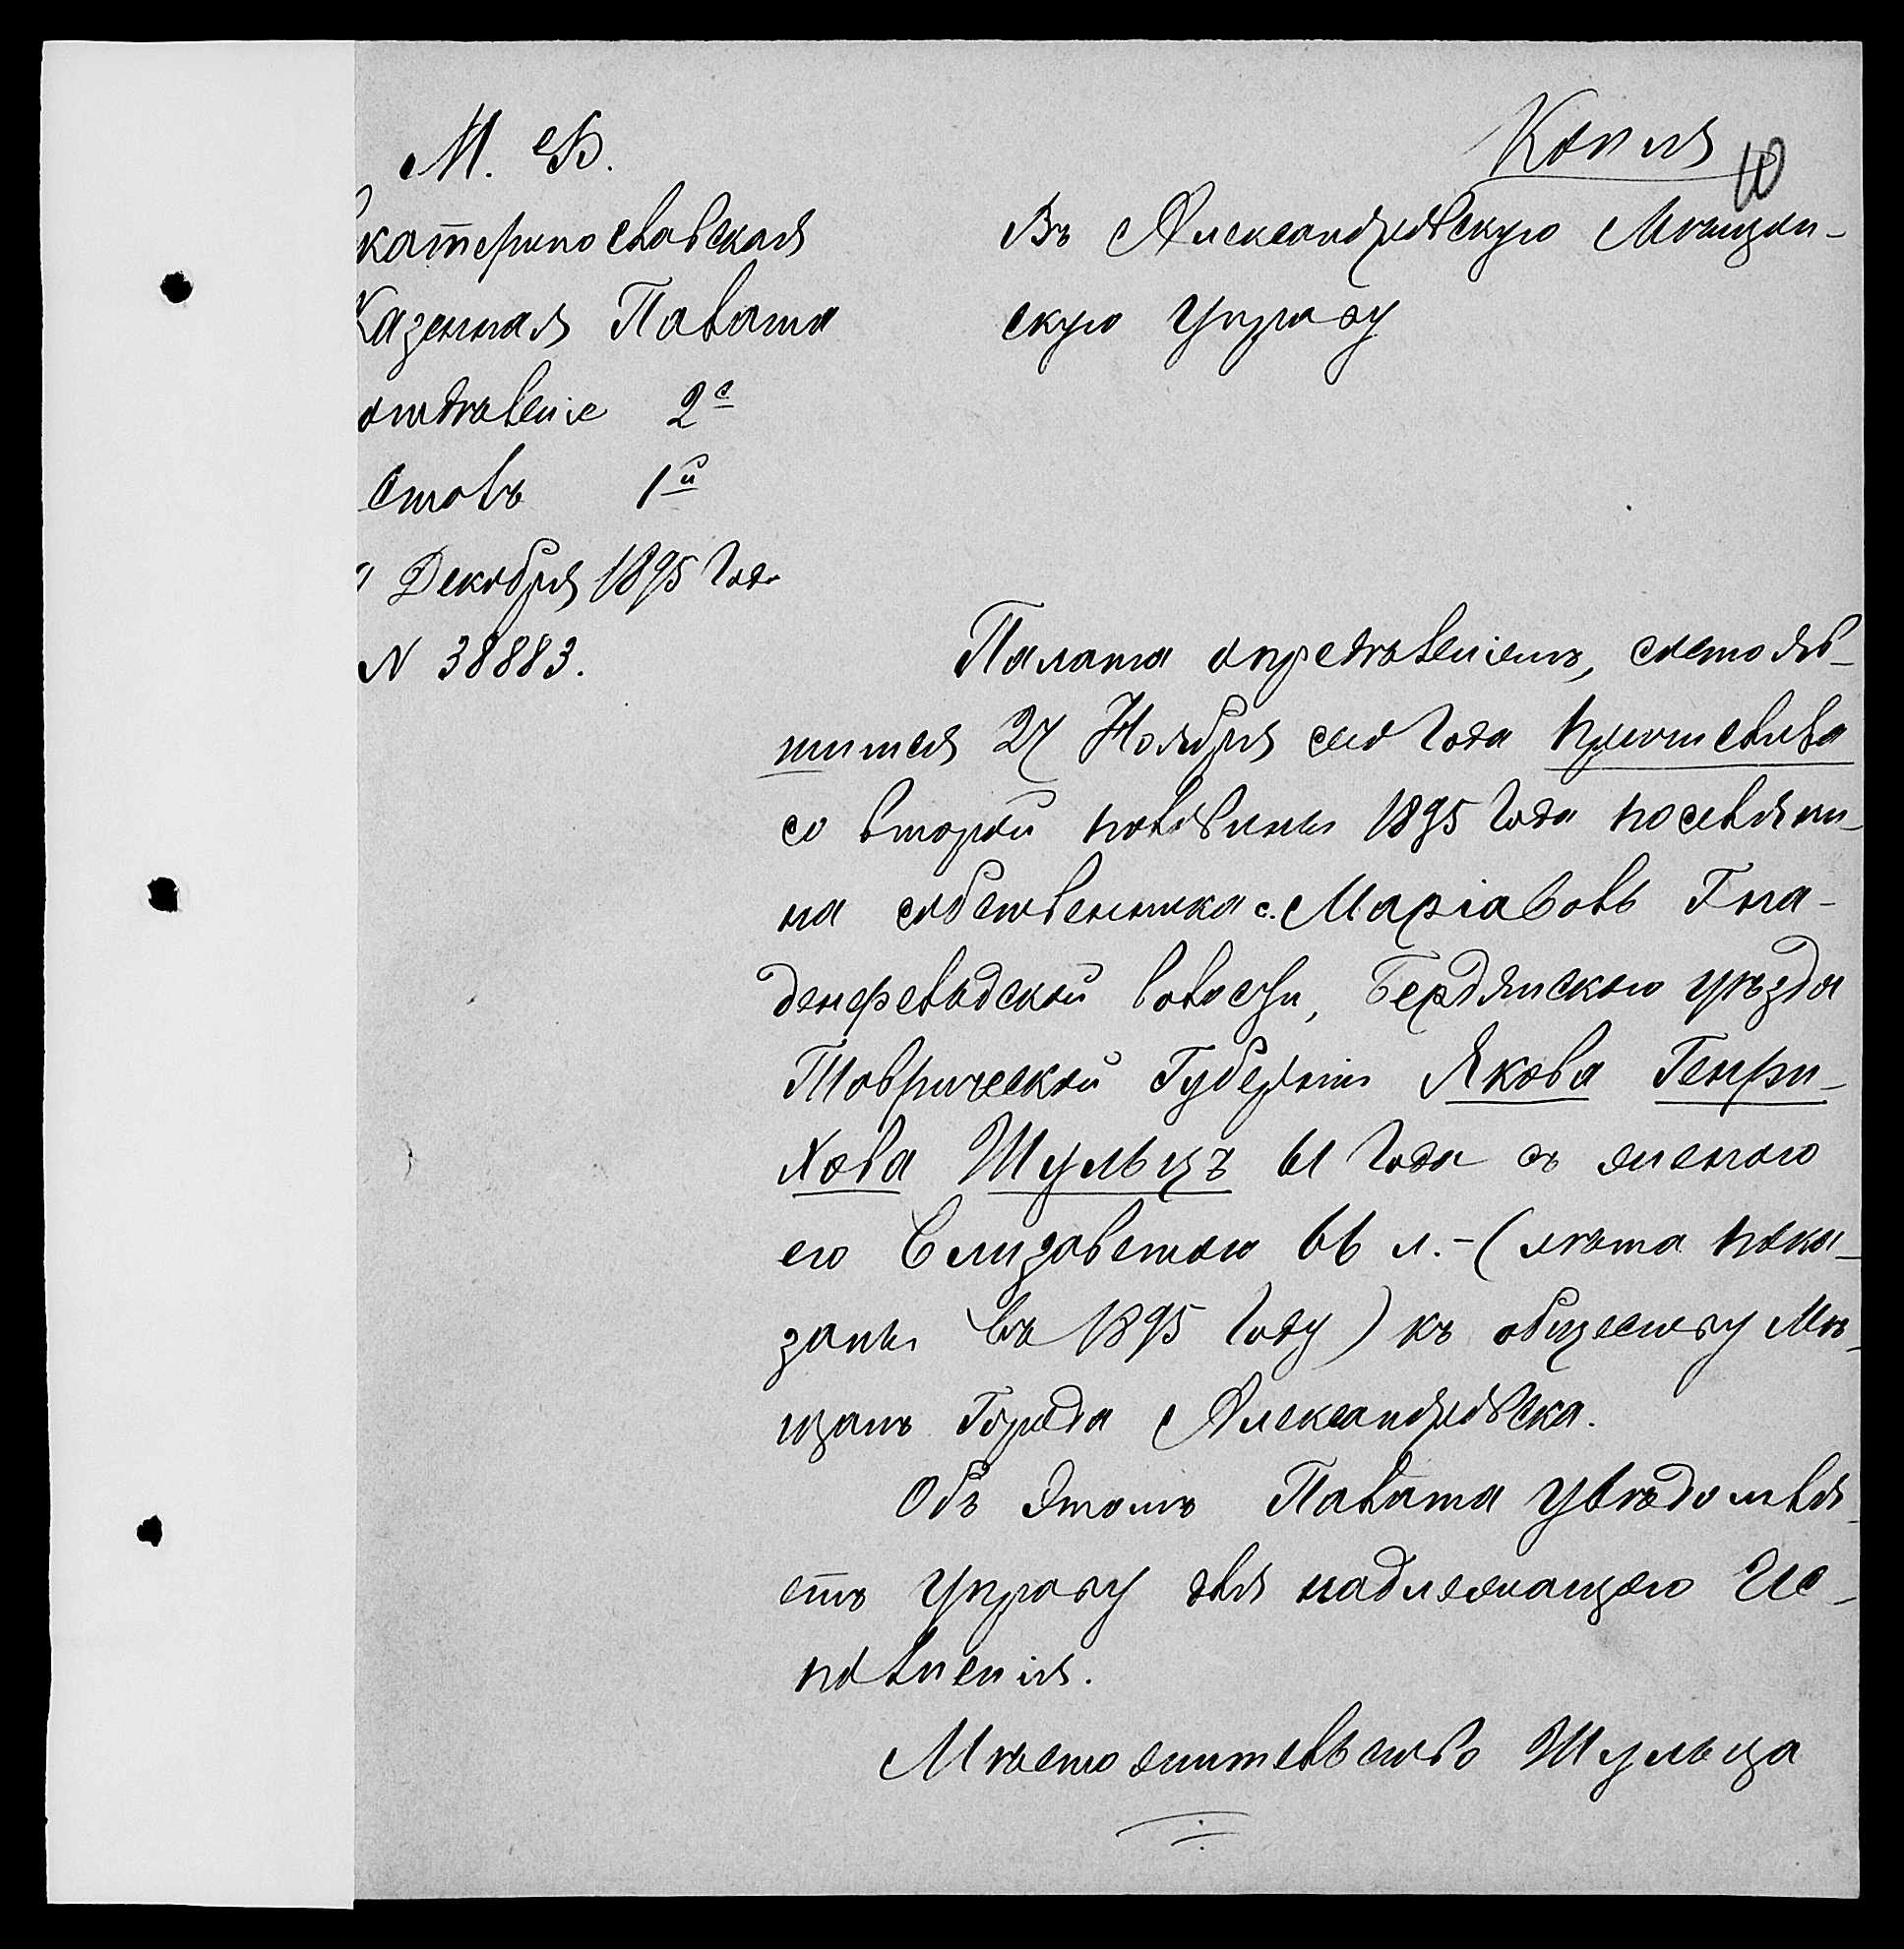 Копія
10
М. Ф.
Екатеринославская
Казенная Палата
отдѣленіе 2е
Столъ 1й
Декабря 1895 года
N 38883.
Въ Александровскую Мѣщан-
скую Управу
Палата опредѣленіемъ, состояв-
шимся 27 Ноября сего года причислила
со второй половины 1895 года поселяни-
на собственника с. Маріаволь Гна-
денфельдской волости, Бердянскаго уѣзда
Таврической Губерніи Якова Генри-
хова Шульцъ 61 года съ женою
его Елизаветою 66 л. - (лѣта пока-
заны въ 1895 году) къ обществу Мѣ-
щанъ Города Александровска.
Объ этомъ Палата увѣдомля-
етъ Управу для надлежащаго Ис-
полненія.
Мѣстожительство Шульца